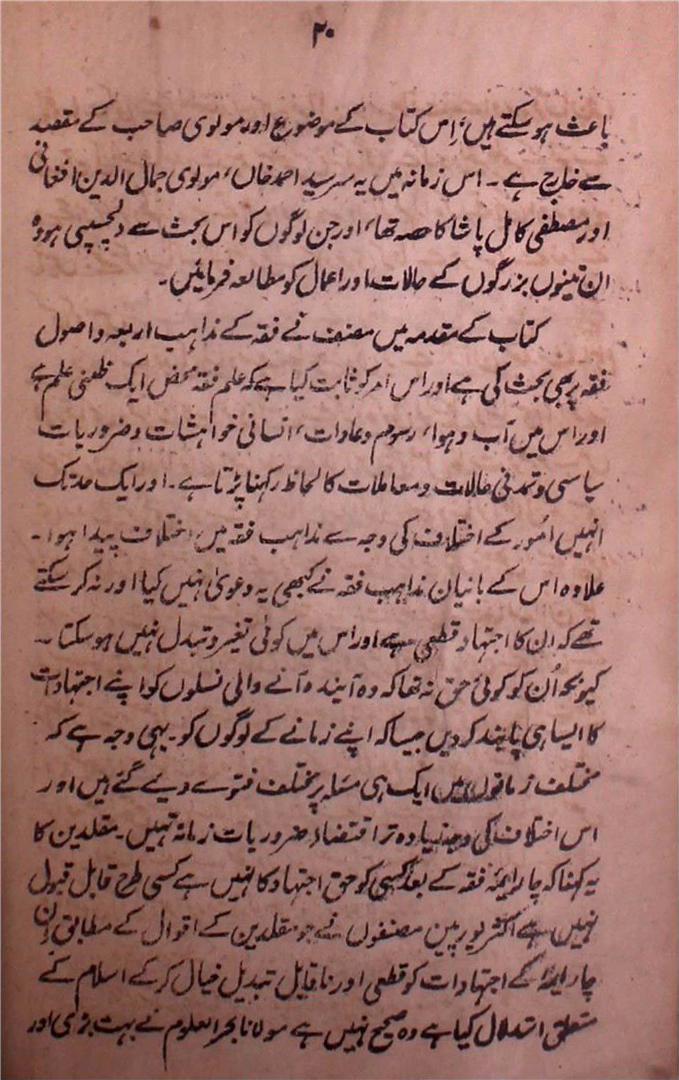 ۲۰
باعث ہو سکتے ہیں، اِس کتاب کے موضوع اور مولوی صاحب کے مقصد
سے خارج ہے۔ اس زمانہ میں یہ سرسید احمد خاں، مولوی جمال الدین افغانی
اور مصطفی کامل پاشا کا حصہ تھا، اور جن لوگوں کو اس بحث سے دلچسپی ہو وہ
ان تینوں بزرگوں کے حالات اور اعمال کو مطالعہ فرمائیں۔
کتاب کے مقدمہ میں مصنف نے فقہ کے مذاہب اربعہ و اصول
فقہ پر بھی بحث کی ہے اور اس امر کو ثابت کیا ہے کہ علم فقہ محض ایک ظنی علم ہے
اور اس میں آب و ہوا، رسوم و عادات، انسانی خواہشات و ضروریات
سیاسی و تمدنی حالات و معاملات کا لحاظ رکھنا پڑتا ہے۔ اور ایک حد تک
انہیں اُمور کے اختلاف کی وجہ سے مذاہب فقہ میں اختلاف پیدا ہوا۔
علاوہ اس کے بانیان مذاہب فقہ نے کبھی یہ دعویٰ نہیں کیا اور نہ کر سکتے
تھے کہ ان کا اجتہاد قطعی ہے اور اس میں کوئی تغیر و تبدل نہیں ہو سکتا۔
کیونکہ اُن کو کوئی حق نہ تھا کہ وہ آیندہ آنے والی نسلوں کو اپنے اجتہادات
کا ایسا ہی پابند کر دیں جیسا کہ اپنے زمانے کے لوگوں کو۔ یہی وجہ ہے کہ
مختلف زمانوں میں ایک ہی مسئلہ پر مختلف فتوے دیے گئے ہیں اور
اس اختلاف کی وجہ زیادہ تر اقتضاء ضروریات زمانہ تہیں۔ مقلدین کا
یہ کہنا کہ چار ایمۂ فقہ کے بعد کسی کو حق اجتہاد کا نہیں ہے کسی طرح قابل قبول
نہیں ہے اکثر یورپین مصنفوں نے جو مقلدین کے اقوال کے مطابق اِن
چار ایمۂ کے اجتہادات کو قطعی اور ناقابل تبدیل خیال کر کے اسلام کے
متعلق استدلال کیا ہے وہ صحیح نہیں ہے مولانا بحر العلوم نے بہت بڑی اور